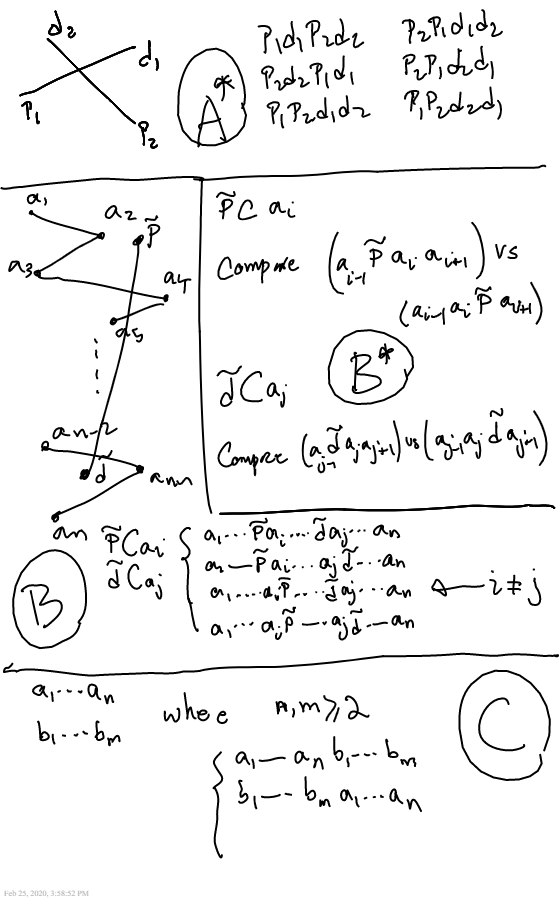 d₂
d₁
P₁
P₂
A*
P₁d₁P₂d₂
P₂P₁d₁d₂
P₂d₂P₁d₁
P₂P₁d₂d₁
P₁P₂d₁d₂
P₁P₂d₂d₁
a₁
a₂
P̃
a₃
a₄
a₅
aₙ₋₂
d̃
aₙ
P̃ C aᵢ
Compare (aᵢ₋₁ P̃ aᵢ aᵢ₊₁) vs
(aᵢ₋₁ aᵢ P̃ aᵢ₊₁)
B*
d̃ C aⱼ
Compare (aⱼ₋₁ d̃ aⱼ aⱼ₊₁) vs (aⱼ₋₁ aⱼ d̃ aⱼ₊₁)
B
P̃ C aᵢ
d̃ C aⱼ
a₁ ... P̃ aᵢ ... d̃ aⱼ ... aₙ
a₁ — P̃ aᵢ ... aⱼ d̃ ... aₙ
a₁ ... aᵢ P̃ ... d̃ aⱼ ... aₙ ← i ≠ j
a₁ ... aᵢ P̃ — aⱼ d̃ — aₙ
a₁ ... aₙ
b₁ ... bₘ
where n, m ≥ 2
C
a₁ — aₙ b₁ ... bₘ
b₁ — bₘ a₁ ... aₙ
Feb 25, 2020, 3:58:52 PM